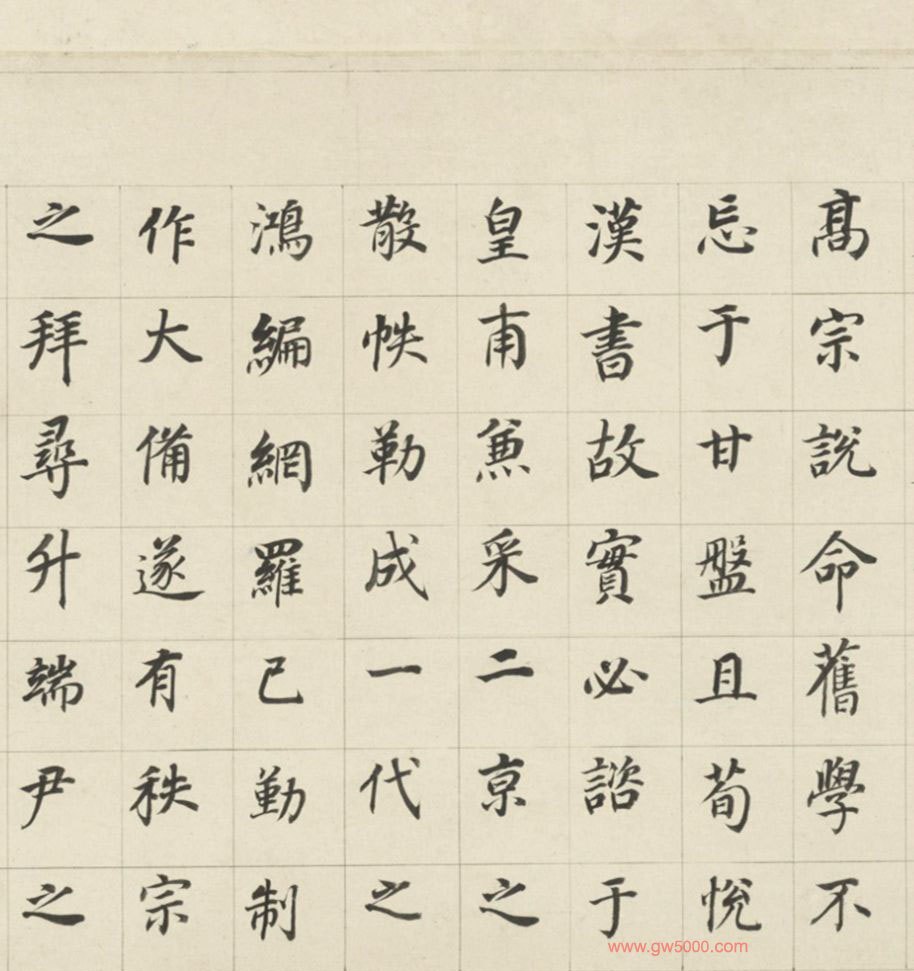 高宗說命舊學不
忘于甘盤且荀悅
漢書故實必諮于
皇甫兼采二京之
散帙勒成一代之
鴻編網羅已勤制
作大備遂有秩宗
之拜尋升端尹之
www.gw5000.com